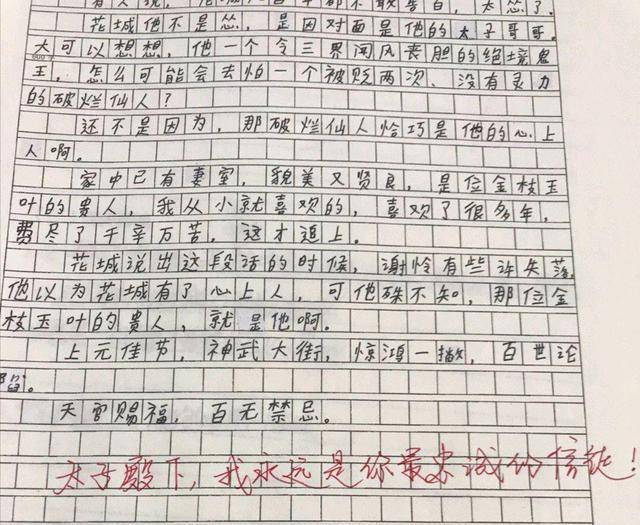 花城他不是怂，是因对面是他的太子哥哥。
大可以想想，他一个令三界闻风丧胆的绝境鬼
王，怎么可能会去怕一个被贬两次、没有灵力
的破烂仙人？
还不是因为，那破烂仙人恰巧是他的心上
人啊。
家中已有妻室，貌美又贤良，是位金枝玉
叶的贵人，我从小就喜欢的，喜欢了很多年，
费尽了千辛万苦，这才追上。
花城说出这段话的时候，谢怜有些许失落，
他以为花城有了心上人，可他殊不知，那位金
枝玉叶的贵人，就是他啊。
上元佳节，神武大街，惊鸿一撇，百世沦
陷。
天官赐福，百无禁忌。
太子殿下，我永远是你最忠诚的信徒！